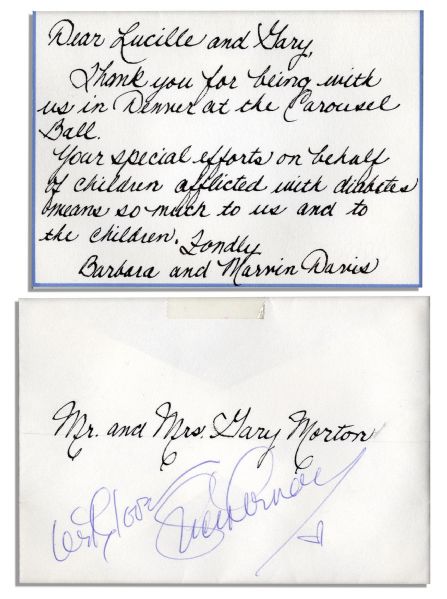 Dear Lucille and Gary,
Thank you for being with
us in Dinner at the Carousel
Ball.
Your special efforts on behalf
of children afflicted with diabetes
means so much to us and to
the children. Fondly
Barbara and Marvin Davis
Mr. and Mrs. Gary Morton